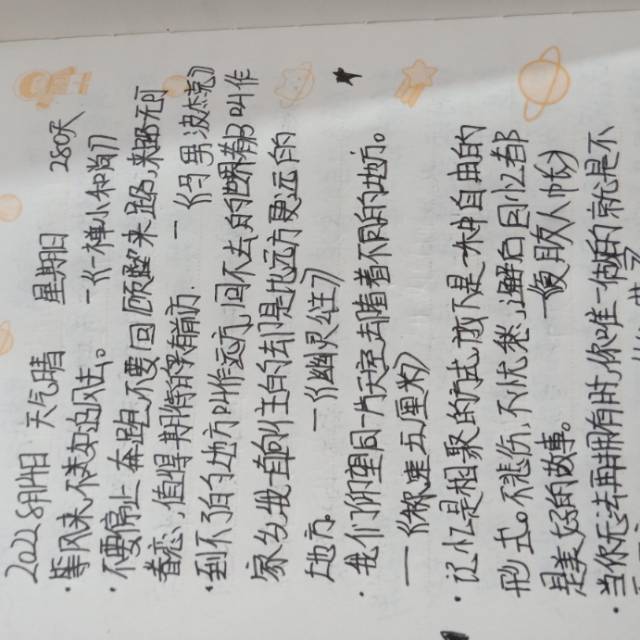 2022.8月14日 天气晴 星期日 280天
·等风来,不如去追风去。—《一禅小和尚》
·不要停止奔跑,不要回顾来路,来路无可
眷恋,值得期待的只有前方. —《马男波杰克》
·到不了的地方叫作远方,回不去的世界有名叫作
家乡,我一直向往的却是比远方更远的
地方. —《幽灵住》
·我们仰望同一片天空却看着不同的地方。
—《秒速五厘米》
·记忆是相聚的方式,而不是一种自由的
形式。不悲伤,不忧愁,连解口回忆都
是美好的故事。 —使用人》
·当你无法再拥有时,你唯一能做的就是不